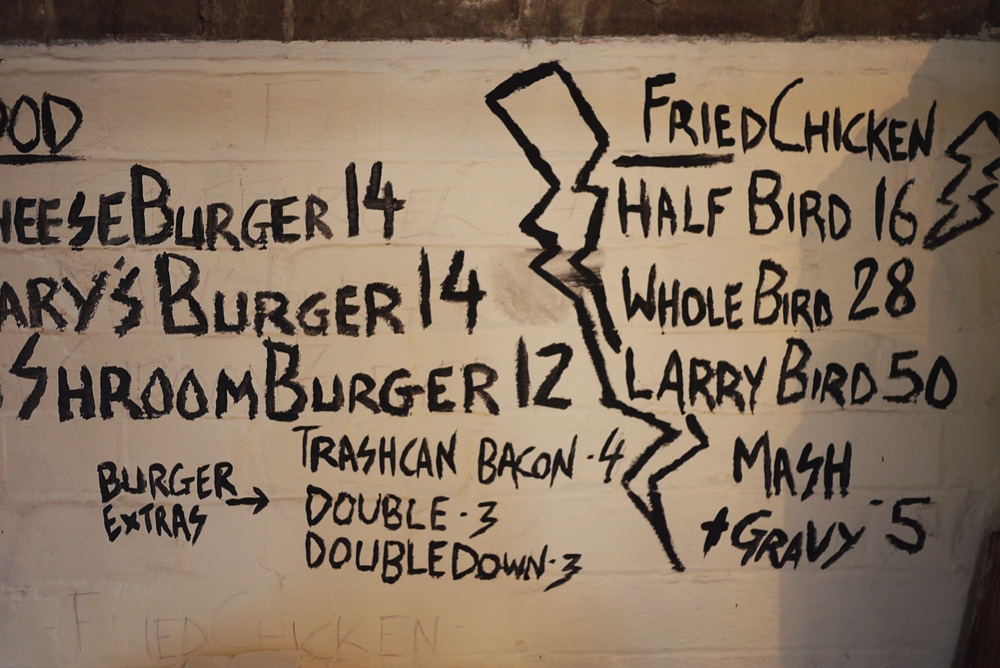 OOD
HEESEBURGER 14
ARY'S BURGER 14
SHROOMBURGER 12
BURGER
EXTRAS →
TRASHCAN BACON - 4
DOUBLE - 3
DOUBLEDOWN - 3
FRIED CHICKEN
HALF BIRD 16
WHOLE BIRD 28
LARRY BIRD 50
MASH
+ GRAVY - 5
- FRIED CHICKEN -